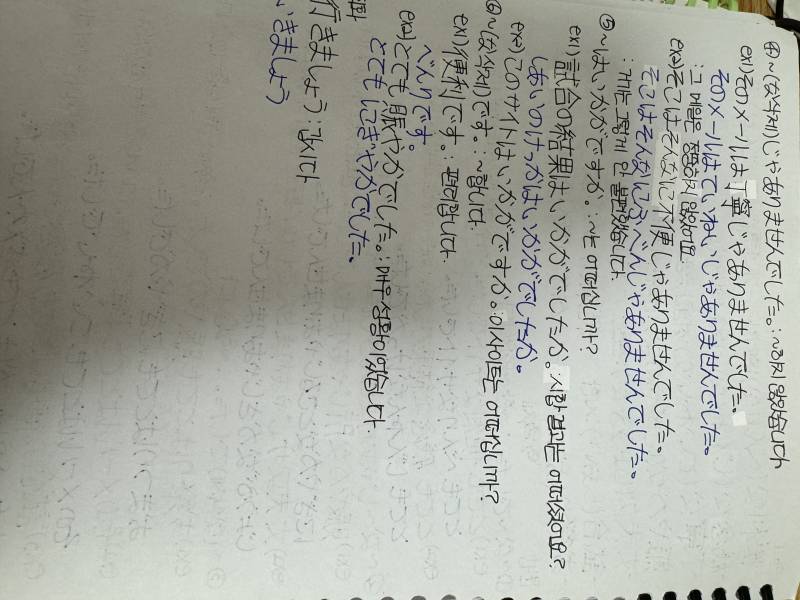 ④ ~(だ삭제)じゃありませんでした。: ~하지 않았습니다
ex1) そのメールは丁寧じゃありませんでした。
そのメールはていねいじゃありませんでした。
: 그 메일은 정중하지 않았어요
ex2) そこはそんなに不便じゃありませんでした。
そこはそんなにふべんじゃありませんでした。
: 거기는 그렇게 안 불편했습니다.
⑤ ~はいかがですか。: ~는 어떠십니까?
ex1) 試合の結果はいかがでしたか。시합 결과는 어떠셨어요?
しあいのけっかはいかがでしたか。
ex2) このサイトはいかがですか。: 이 사이트는 어떠십니까?
⑥ ~(だ삭제)です。: ~합니다.
ex1) 便利です。: 편리합니다.
べんりです。
ex2) とても賑やかでした。: 매우 성황이었습니다.
とてもにぎやかでした。
行きましょう: 갑시다
いきましょう